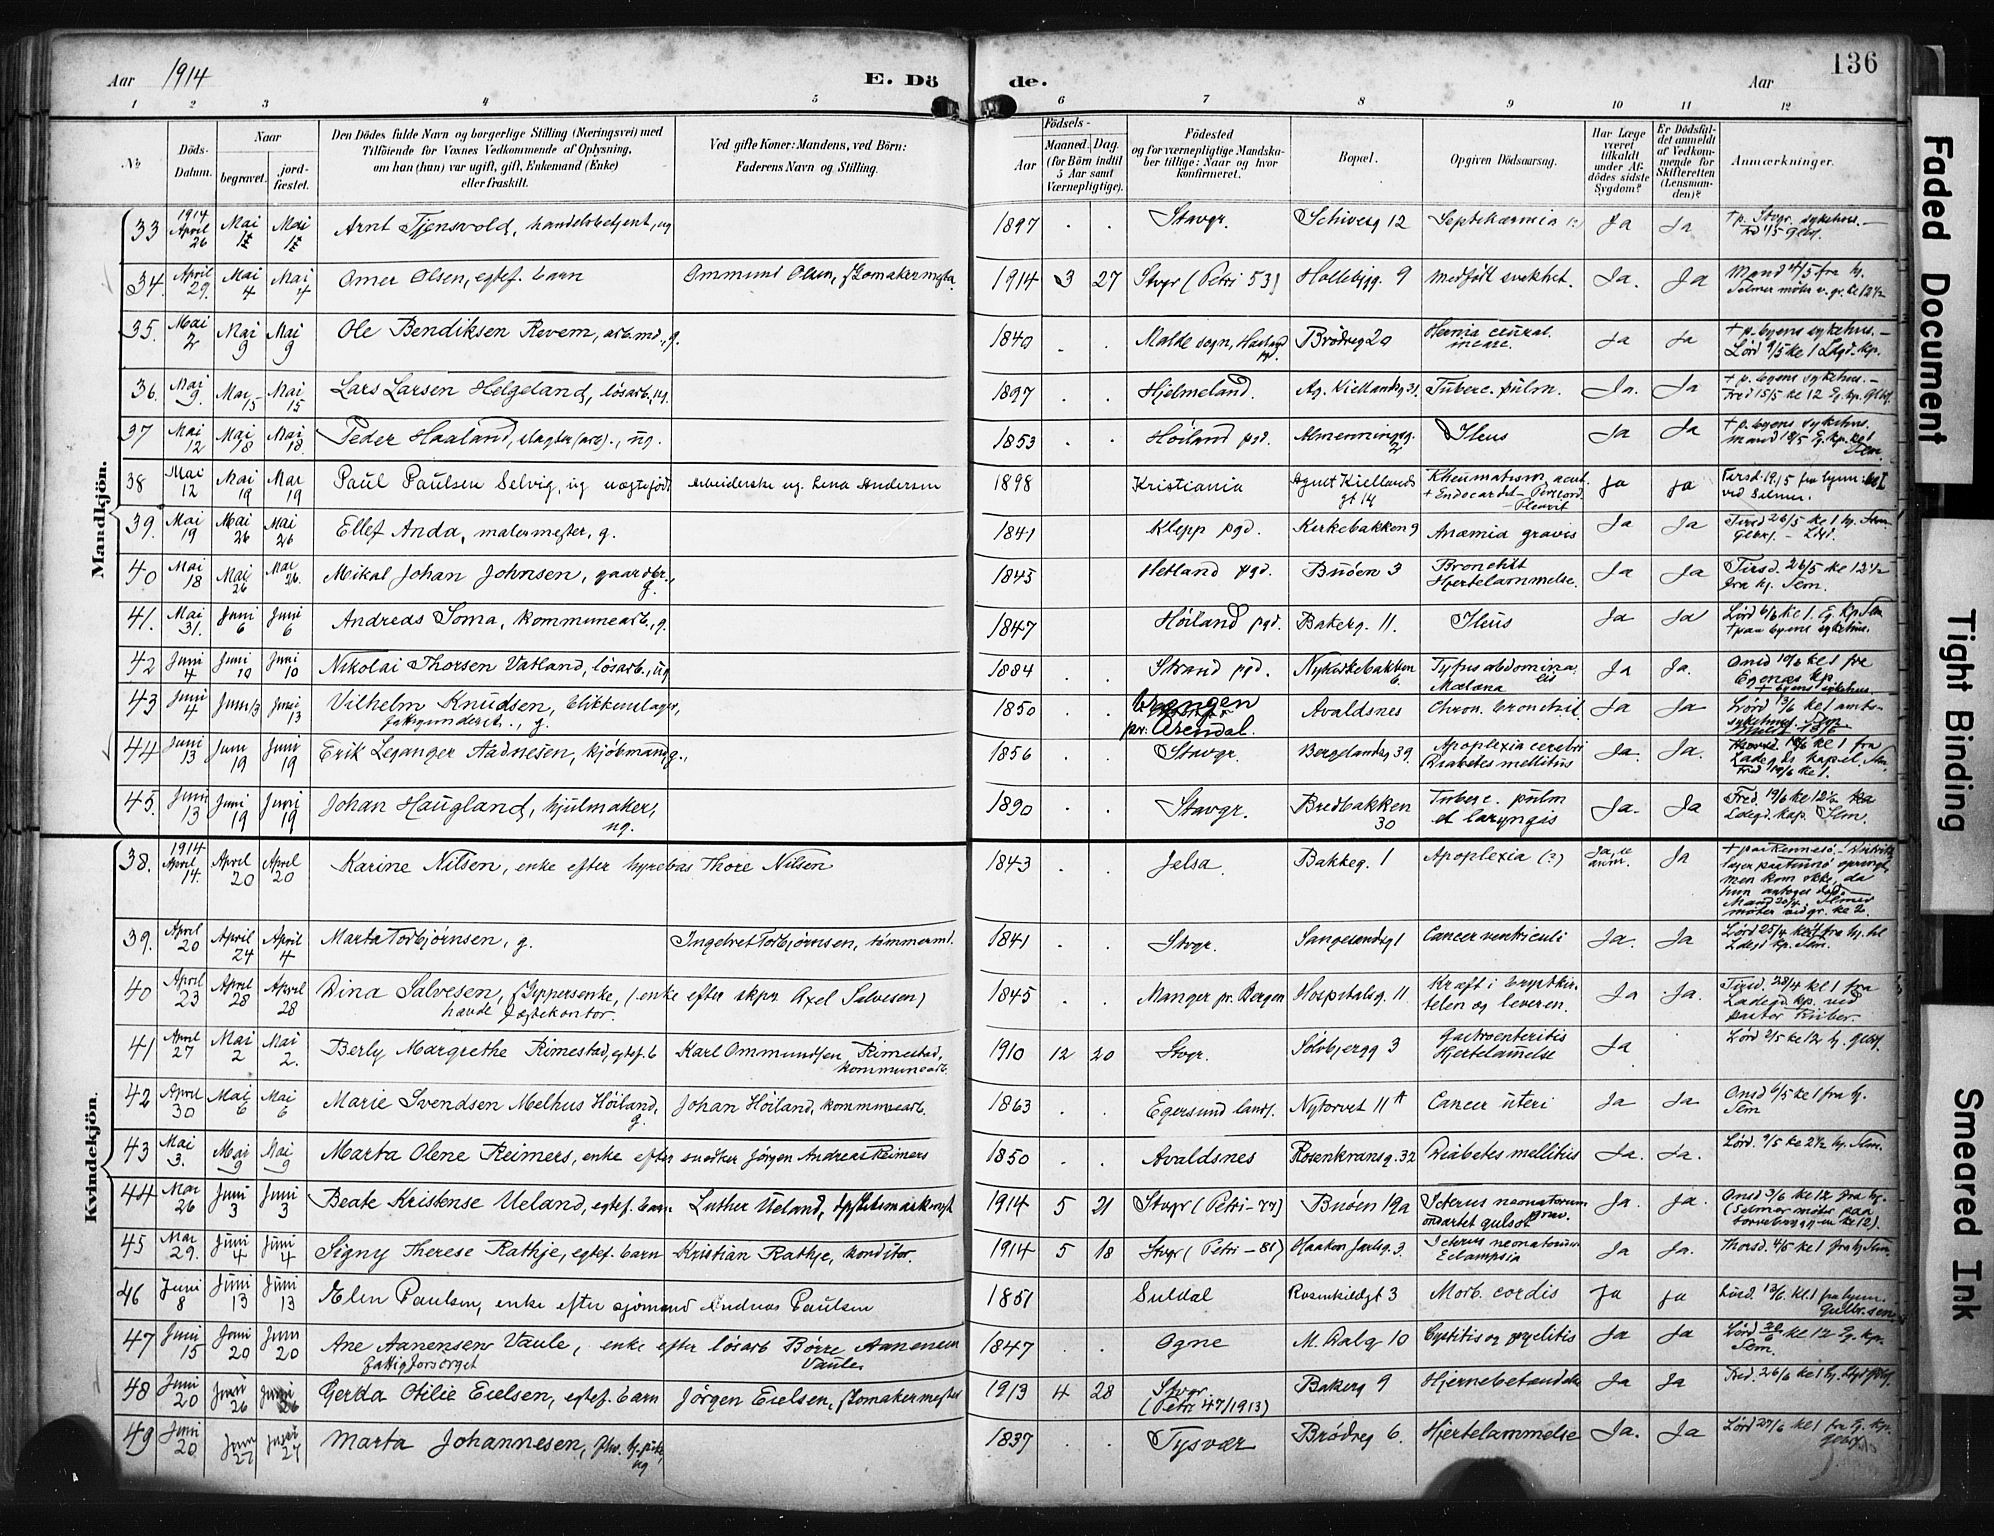 Aar 1914 E. Dö de. Aar 136
1 2 3 4 5 6 7 8 9 10 11 12
No Döds-Datum. Naar begravet. jord-fæstet. Den Dödes fulde Navn og borgerlige Stilling (Næringsvei) med Tilföiende for Voxnes Vedkommende af Oplysning, om han (hun) var ugift, gift, Enkemand (Enke) eller fraskilt. Ved gifte Koner: Mandens, ved Börn: Faderens Navn og Stilling. Födsels- Aar Maaned. Dag. (for Börn indtil 5 Aar samt Værnepligtige). Födested og for værnepligtige Mandskaber tillige: Naar og hvor konfirmeret. Bopæl. Opgiven Dödsaarsag. Har Læge været tilkaldt under Afdödes sidste Sygdom? Er Dödsfaldet anmeldt af Vedkommende for Skifteretten (Lensmanden)? Anmærkninger.
Mandkjön.
33 1914 April 26 Mai Mai Arnt Tjensvold, handelsbetjent, ug 1897 Stavgr. 12 Ja Ja + p. Stvgr. sykehus.
34. April 29. Mai 4 Mai 4 Omer Olsen, egtef. barn Ommund Olsen, skomakermester 1914 3 27 Stvgr (Petri 53) 9 Medfödt svakhet. Ja. Ja
35. Mai 2 Mai 9 Mai 9 Ole Bendiksen Revem, arb.md., g. 1840 Malde sogn, Brödreg 20 Hernia Ja Ja + p. byens sykehus.
36. Mai 9. Mai 15 Mai 15 Lars Larsen Helgeland, lösarb., ug. 1897 Hjelmeland. Ag. Kiellandsg 31. Tuberc. pulm. Ja. Ja + p. byens sykehus.
37 Mai 12 Mai 18 Mai 18. Peder Haaland, slagter (arb)., ug. 1853 Höiland pgd. Almenningsg. 2 Ileus Ja Ja + p. byens sykehus.
38 Mai 12 Mai 19 Mai 19 Paul Paulsen Selvig, ug uægtefödt Arbeiderske ug. Lena Andersen 1898 Kristiania Agnut Kiellands gt 14 Rheumatism. acut. + Endocardit - Pericard. - Pleurit Ja Ja Tirsd. 19.5 fra hjem. ved Selmer.
39. Mai 19 Mai 26 Mai 26 Ellef Anda, malermester, g. 1841 Klepp pgd. Kirkebakken 9 Anæmia gravis Ja Ja Tirsd 26/5 kl 1
40 Mai 18 Mai 26 Mai 26. Mikal Johan Johnsen, gaardbr., g. 1845 Hetland pgd. Buöen 3 Bronchitt Hjertelammelse. Ja Ja Tirsd. 26/5 kl 12 1/2 fra hj. Sem.
41. Mai 31. Juni 6 Juni 6 Andreas Soma, kommunearb., g. 1847 Höiland pgd. Bakerg. 11. Ileus Ja Ja Lörd 6/6 kl 1. Eg. Kp Sem + paa byens sykehus.
42 Juni 4 Juni 10 Juni 10 Nikolai Thorsen Vatland, lösarb., ug 1884 Strand pgd. Nykirkebakken 6. Tyfus abdominalis Melæna Ja Ja. Onsd 10/6 kl 1 fra Egenæs kp. + byens sykehus.
43 Juni 4 Juni 13 Juni 13 Vilhelm Knudsen, blikkenslager, fattigunderst., g. 1850 pr. Arendal. Avaldsnes Chron. bronchit. Ja Ja. Lörd 13/6 kl 1
44 Juni 13 Juni 19 Juni 19 Erik Leganger Aadnesen, kjöbmand, g., 1856 Stavgr. Bergelandsg 39. Apoplexia cerebri Diabetes mellitus Ja. Ja. kl 1 fra Ladegds kapel. Sem. Fred 19/6 kl 1.
45. Juni 13 Juni 19 Juni 19 Johan Haugland, hjulmaker, ug. 1890 Stavgr. Bredbakken 30 Tuberc. pulm et laryngis Ja. Ja Fred. 19/6 kl 12 1/2 Ldegd. kap. Sem.
Kvindekjön.
38. 1914 April 14. April 20 April 20 Karine Nilsen, enke efter hyrebas Thore Nilsen 1843 Jelsa. Bakkeg. 1 Apoplexia (?) Ja, se anm. Ja men kom ikke, da hun antoges död. Mand 20/4. Selmer möter ved gr. kl 2.
39. April 20 April 24 April 4 Marta Torbjörnsen, g. Ingebret Torbjörnsen, tömmermd. 1841 Stvgr. Sangesandsg 1 Cancer ventriculi Ja. Ja Lörd 25/4 Ldegd kp. Sem.
40 April 23 April 28 April 28 Dina Salvesen, skippersenke, (enke efter skpr Axel Salvesen) havde fæstekontor. 1845 Manger pr. Bergen Hospitalsg. 11 Kræft i brystkirtelen og leveren. Ja Ja. Tirsd. 28/4 kl 1 fra Ladegd. kp. ved pastor Riiber.
41 April 27 Mai 2 Mai 2. Berly Margrethe Rimestad, egtef. b Karl Ommundsen Rimestad, kommunearb. 1910 12 20 Stvgr. Solvbjergg 3 Gastroenteritis Hjertelammelse Ja Lörd 2/5 kl 12 hj.
42 April 30 Mai 6 Mai 6 Marie Svendsen Melhus Höiland, g. Johan Höiland, kommunearb. 1863 Egersund lands. Nytorvet 11 A Cancer uteri Ja Ja Onsd 6/5 kl 1 fra hj. Sem
43 Mai 3. Mai 9 Mai 9 Marta Olene Reimers, enke efter snedker Jörgen Andreas Reimers 1850 Avaldsnes Rosenkransg. 32 Diabetes mellitus Ja. Ja. Lörd. 9/5 kl 2 1/2 hj. Sem.
44 Mai 26 Juni 3 Juni 3 Beate Kristense Ueland, egtef. barn Luther Ueland, 1914 5 21 Stvgr (Petri - 77) Buöen 19a Icterus neonatorum ondartet gulsot grav. Ja. Ja. Onsd 3/6 kl 12 fra hj. (Selmer möter paa kl 12).
45 Mai 29. Juni 4 Juni 4 Signy Therese Rathje, egtef. barn Kristian Rathje, konditor. 1914 5 18 Stvgr (Petri - 81) Haakon Jarlsg. 3. Icterus neonatorum Eclampsia Ja Ja. Thorsd. 4/6 kl 1 fra hj Sem.
46 Juni 8 Juni 13 Juni 13 Elen Paulsen, enke efter sjömand Andreas Paulsen 1851 Suldal Rosenkildegt 3 Morb. cordis Ja Ja Lörd. 13/6. kl. 1 fra hjem.
47 Juni 15 Juni 20 Juni 20 Ane Aanensen Vaule, enke efter lösarb Börre Aanensen Vaule. fattigforsörget 1847 Ogne M. Dalsg 10 Cystitis og pyelitis Ja Ja Lörd 20/6 kl 12 Eg. kp. Sem.
48 Juni 20 Juni 26 Juni 26 Gerda Otilie Eielsen, egtef. barn Jörgen Eielsen, skomakermester 1913 4 28 Stvgr. (Petri 47/1913) Bakerg 9 Hjernebetændelse Ja Ja Fred. 26/6 kl 1 hj.
49 Juni 20 Juni 27 Juni 27 Marta Johannesen, ug 1837 Tysvær Brödreg 6. Hjertelammelse Ja. Ja Lörd 27/6 kl 1 fra Eg. kp.
Faded Document
Tight Binding
Smeared Ink